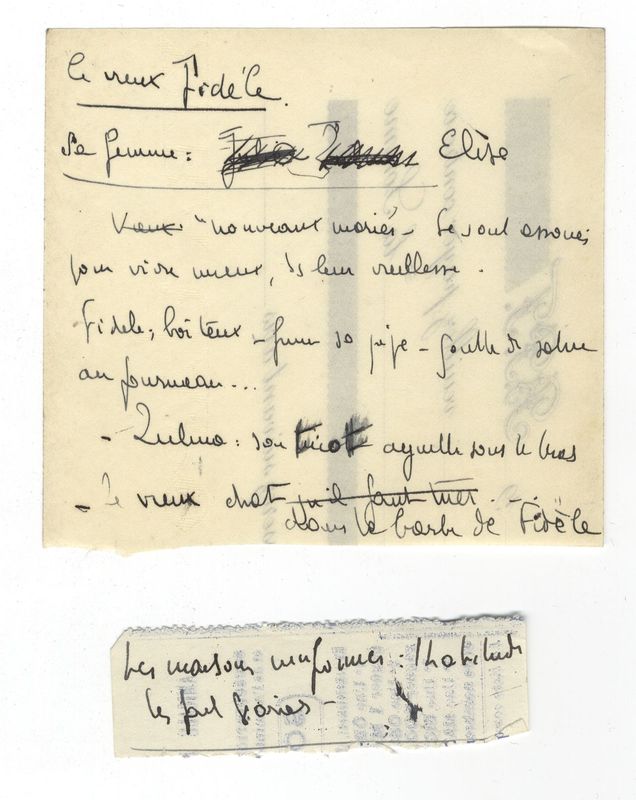 le vieux Fidèle.
Sa femme : Elise
Vieux "nouveaux mariés - Se sont associés
pour vivre mieux, ds leur vieillesse.
Fidèle ; boîteux - fume sa pipe - goutte de salive
au fourneau...
- Zulma : son tricot aiguille sous le bras
- Le vieux chat qu'il faut tuer...
dans la barbe de Fidèle
Les maisons uniformes : l'habitude
les fait